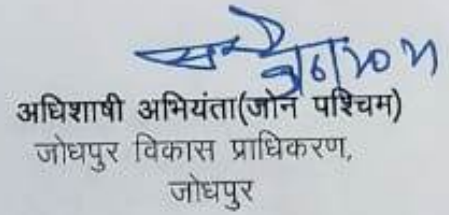 अधिशाषी अभियंता(जोन पश्चिम)
जोधपुर विकास प्राधिकरण,
जोधपुर